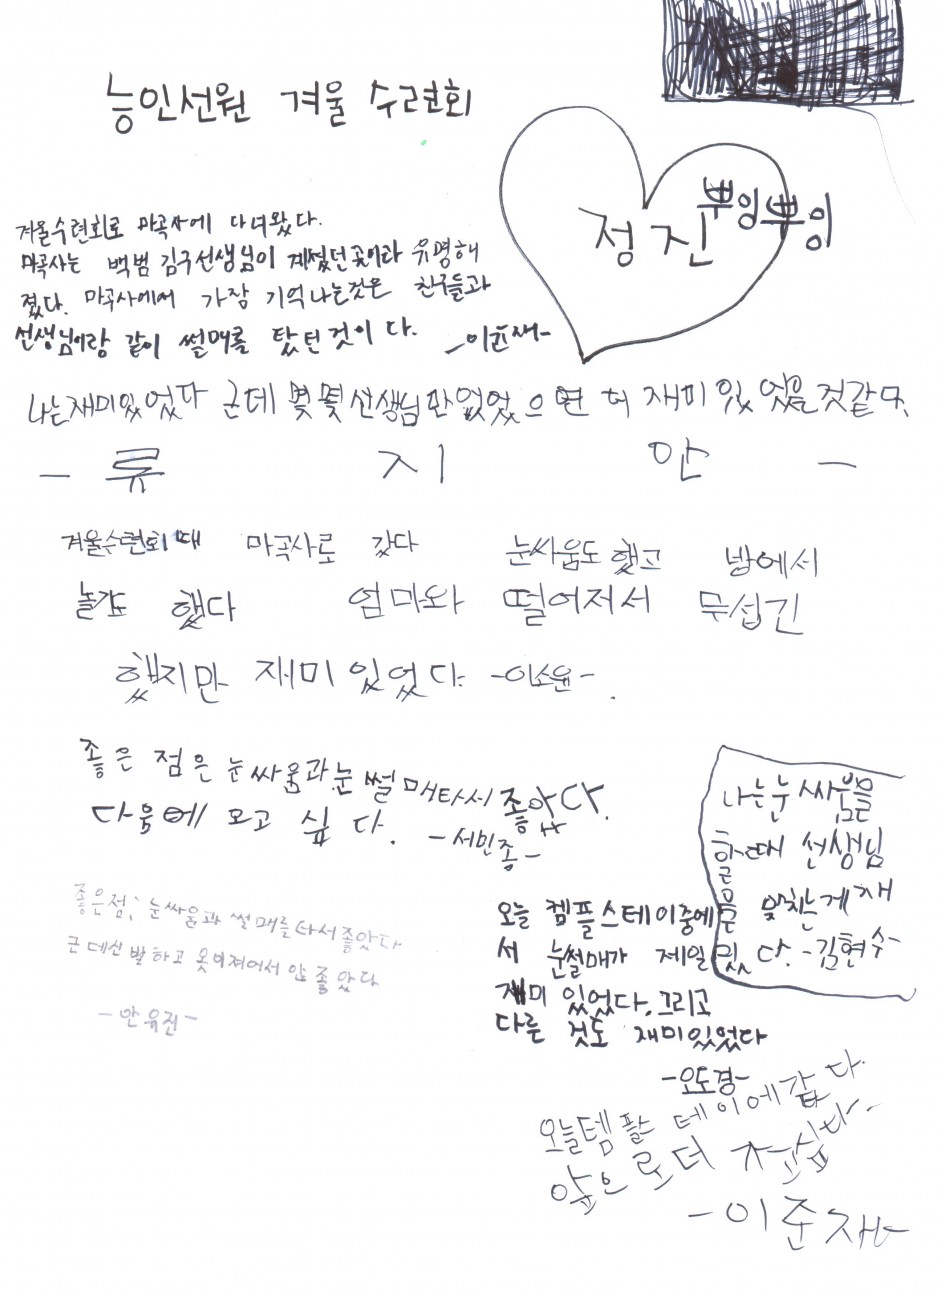 능인선원 겨울 수련회
정진
뿌잉뿌잉
겨울수련회로 마곡사에 다녀왔다.
마곡사는 백범 김구선생님이 계셨던곳이라 유명해
졌다. 마곡사에서 가장 기억나는것은 친구들과
선생님이랑 같이 썰매를 탔던것이다.
-이윤재-
나는재미있었다 군데 몇몇선생님만없었으면 더 재미있었을것같다.
- 류 지 안 -
겨울수련회때 마곡사로 갔다 눈싸움도 했고 방에서
놀기도 했다 엄마와 떨어져서 무섭긴
했지만 재미있었다 -이소윤-.
좋은 점은 눈싸움과눈썰매타서 좋았다.
다음에 오고 싶다.
-서민종-
나는눈싸움을
할때 선생님
얼굴을 맞치는게 재
밌다.-김현수-
좋은점; 눈싸움과 썰매를타서좋았다
근데신발하고 옷이젖어서 안좋았다
-안유진-
오늘 켐플스테이중에
서 눈썰매가 제일
재미있었다.그리고
다른 것도 재미있었다
-오도경-
오늘템플스테이에갔다.
앞으로더 가고싶다.
-이준재-